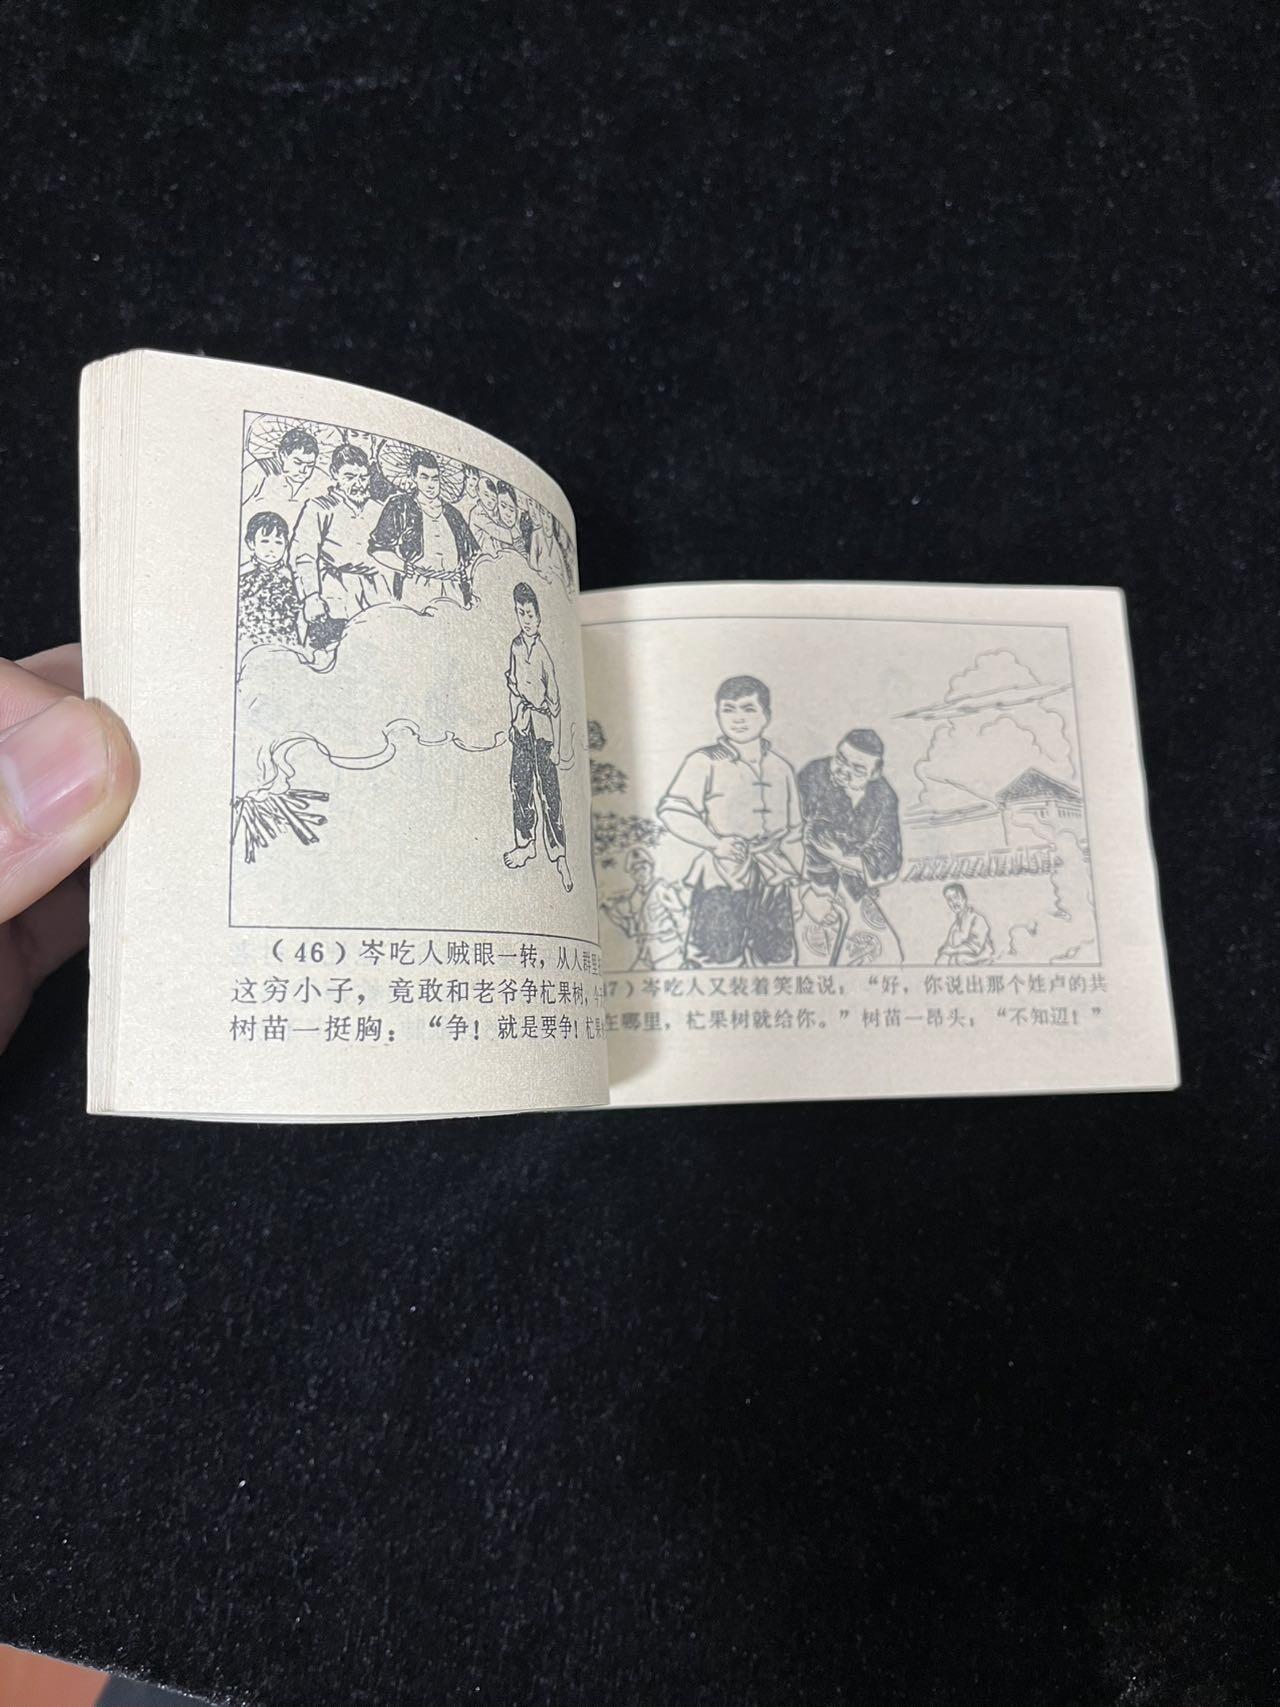 （46）岑吃人贼眼一转，从人群里
这穷小子，竟敢和老爷争杧果树，今
树苗一挺胸：“争！就是要争！杧果
7）岑吃人又装着笑脸说：“好，你说出那个姓卢的共
在哪里，杧果树就给你。”树苗一昂头：“不知辺！”